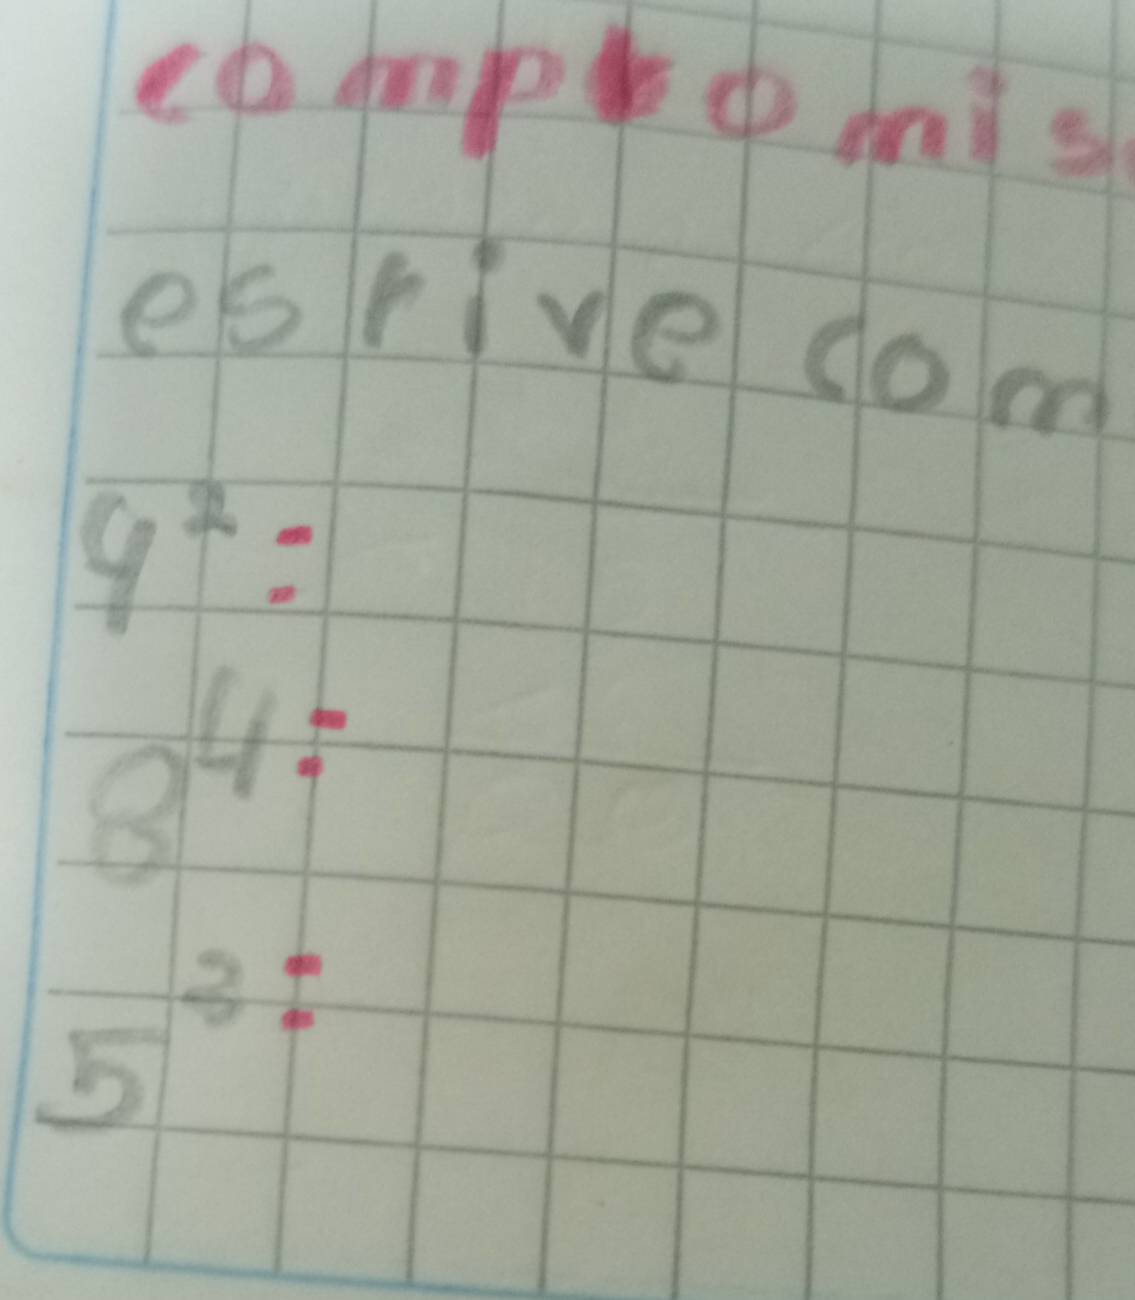 compromis
esrive com
9² =
8⁴ =
5³ =